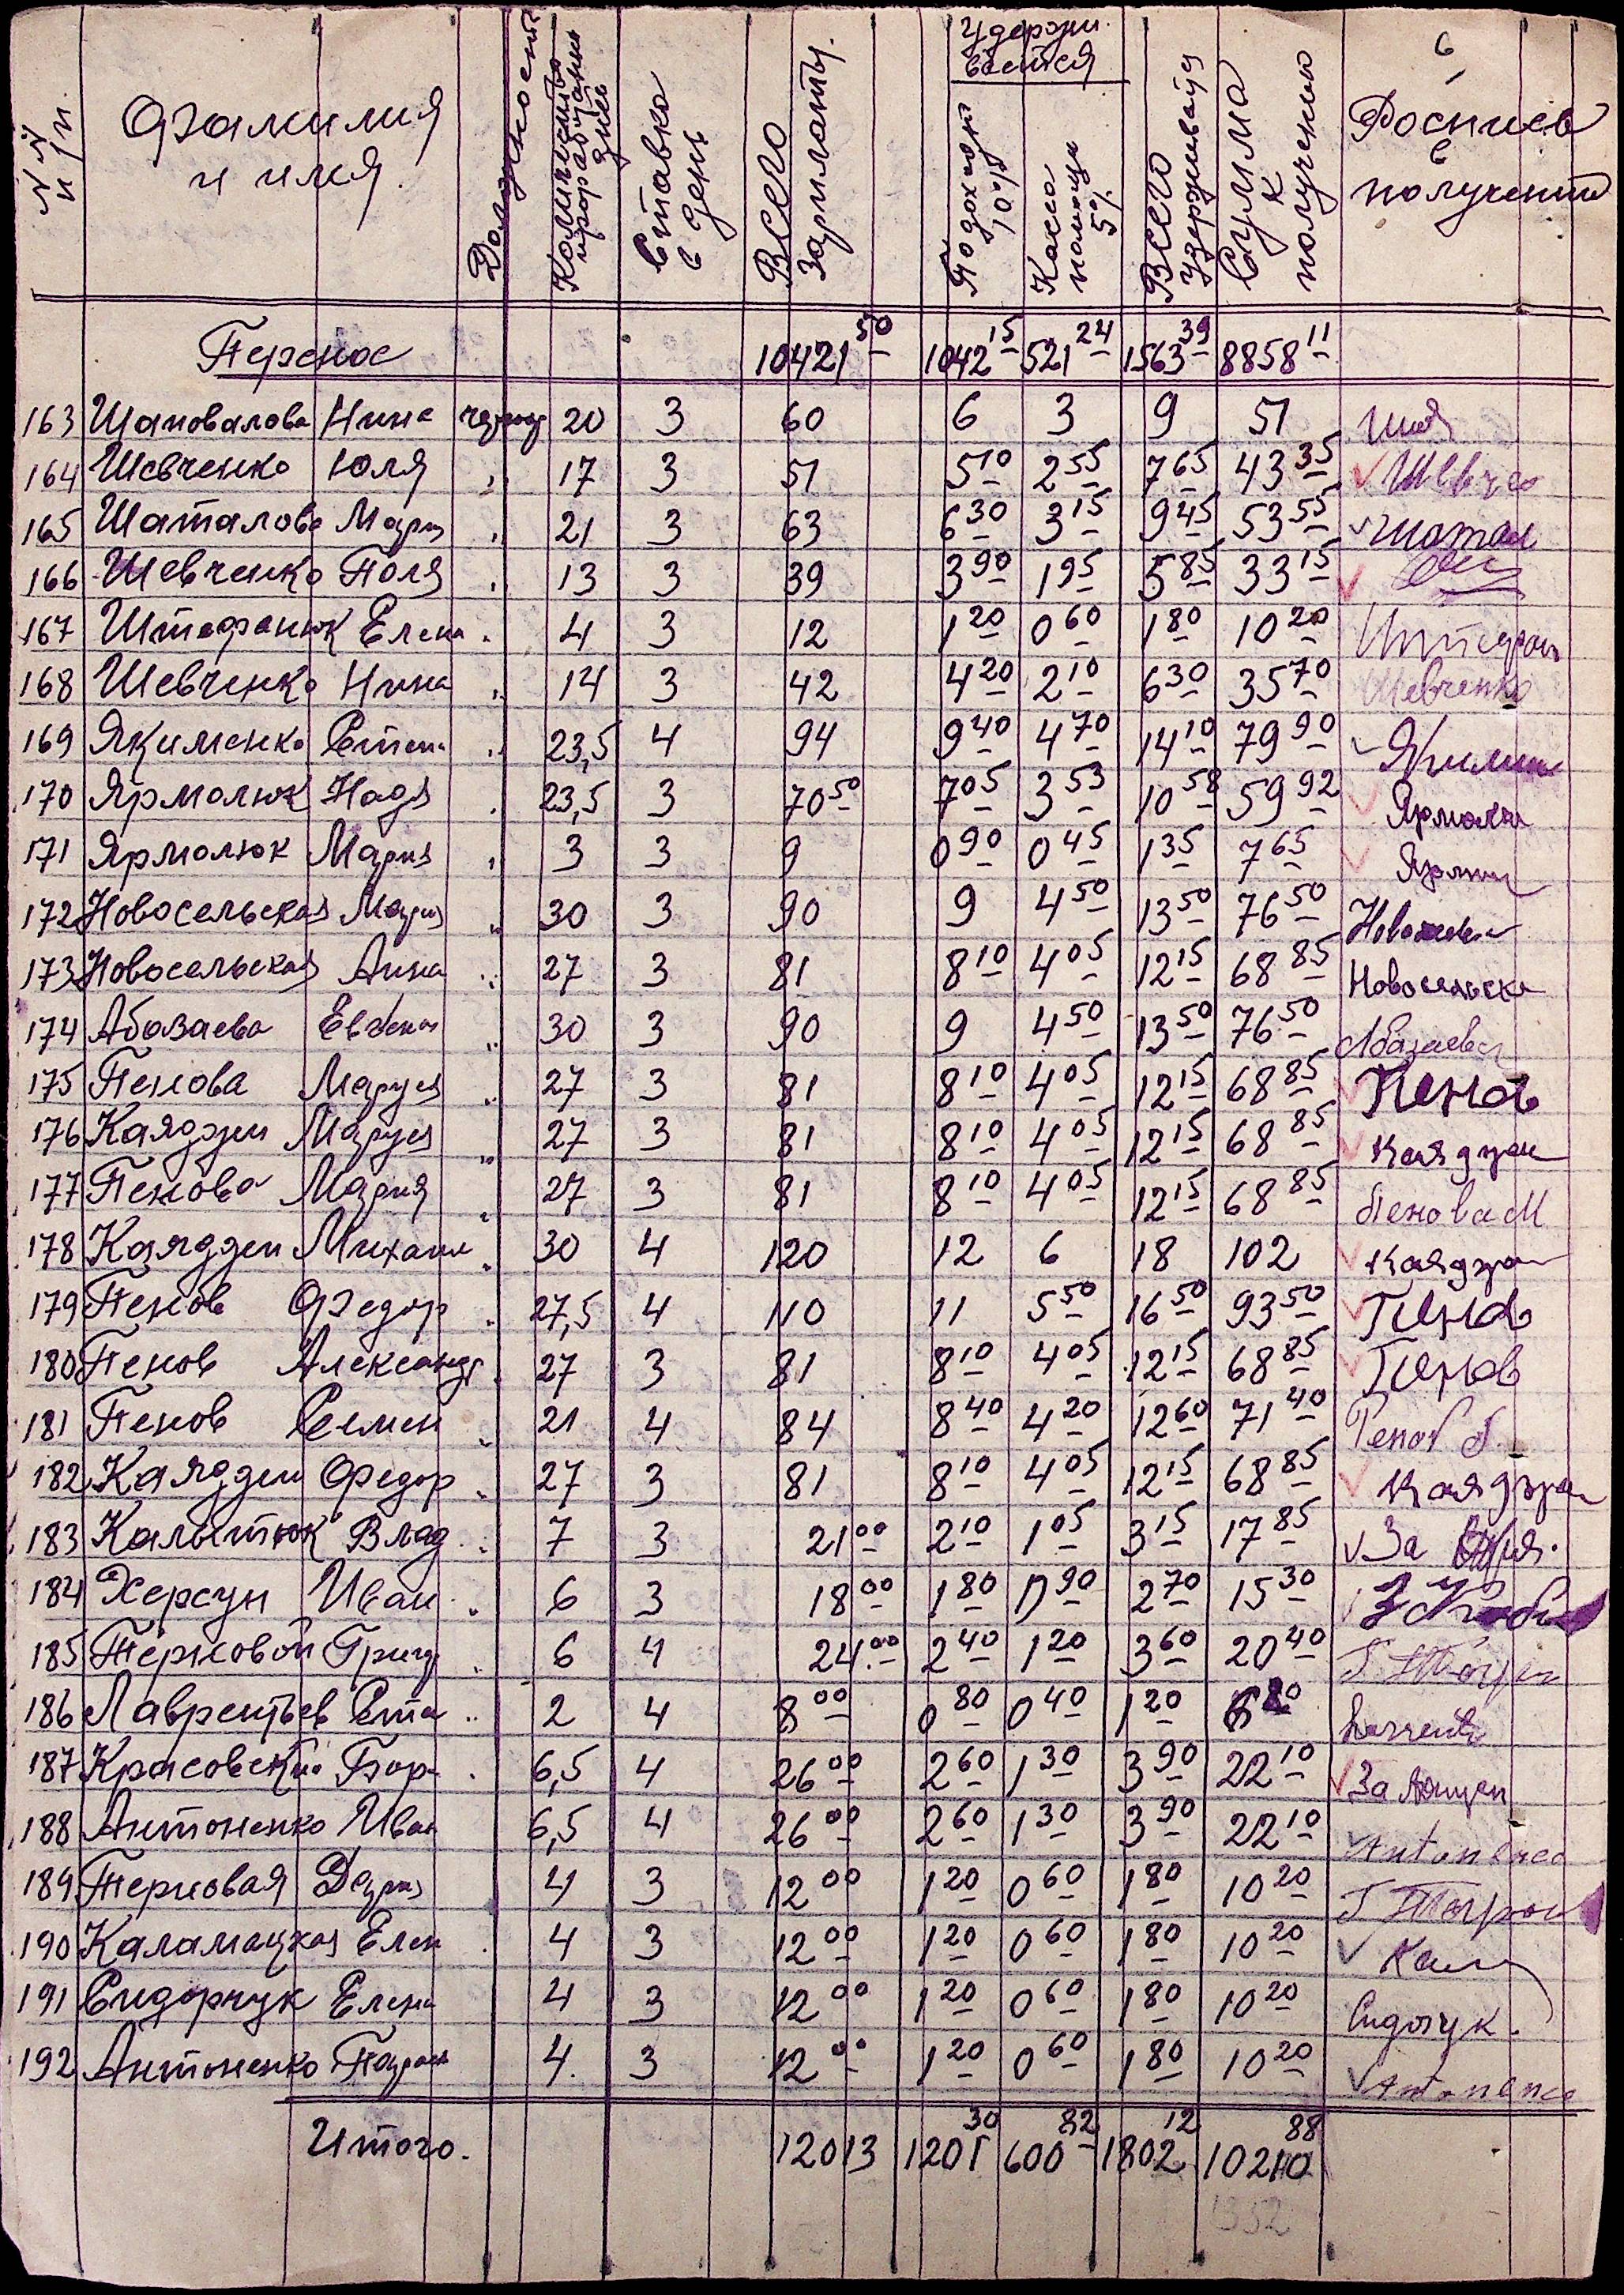 6
N N п/п. Фамилия и имя. Должность Количество проработанн дней Ставка в день Всего зарплаты. Удержи вается Подоходн 10% Касса помощи 5% Всего удерживаеу Сумма к получению Роспись в получении
Перенос 10421 50 1042 15 521 24 1563 39 8858 11
163 Шаповалова Нина 20 3 60 6 3 9 51
164 Шевченко Юля " 17 3 51 5 10 2 55 7 65 43 35
165 Шаталова Мария " 21 3 63 6 30 3 15 9 45 53 55 Шатал
166 Шевченко Поля " 13 3 39 3 90 1 95 5 85 33 15
167 Штефанюк Елена " 4 3 12 1 20 0 60 1 80 10 20 Штефан
168 Шевченко Нина " 14 3 42 4 20 2 10 6 30 35 70 Шевченко
169 Якименко Степа " 23,5 4 94 9 40 4 70 14 10 79 90
170 Ярмолюк Надя " 23,5 3 70 50 7 05 3 53 10 58 59 92 Ярмолю
171 Ярмолюк Мария " 3 3 9 0 90 0 45 1 35 7 65
172 Новосельская Мария " 30 3 90 9 4 50 13 50 76 50
173 Новосельская Анна " 27 3 81 8 10 4 05 12 15 68 85 Новосельска
174 Абазаева Евгения " 30 3 90 9 4 50 13 50 76 50 Абазаева
175 Пенова Маруся " 27 3 81 8 10 4 05 12 15 68 85 Пенов
176 Каяджи Маруся " 27 3 81 8 10 4 05 12 15 68 85 Каяджи
177 Пенова Мария " 27 3 81 8 10 4 05 12 15 68 85 Пенова М
178 Каяджи Михаил " 30 4 120 12 6 18 102 Каяджи
179 Пенов Федор " 27,5 4 110 11 5 50 16 50 93 50 Пенов
180 Пенов Александр " 27 3 81 8 10 4 05 12 15 68 85 Пенов
181 Пенов Семен " 21 4 84 8 40 4 20 12 60 71 40 Пенов С.
182 Каяджи Федор " 27 3 81 8 10 4 05 12 15 68 85 Каяджи
183 Калытюк Влад. " 7 3 21 00 2 10 1 05 3 15 17 85 За
184 Херсун Иван " 6 3 18 00 1 80 0 90 2 70 15 30
185 Терновой Григ " 6 4 24.00 2 40 1 20 3 60 20 40
186 Лаврентьев Степа " 2 4 8 00 0 80 0 40 1 20 6 80
187 Красовский Бор. " 6,5 4 26 00 2 60 1 30 3 90 22 10 За
188 Антоненко Иван 6,5 4 26 00 2 60 1 30 3 90 22 10
189 Терновая Дария 4 3 12 00 1 20 0 60 1 80 10 20
190 Каламацкая Елен 4 3 12 00 1 20 0 60 1 80 10 20
191 Сидорчук Елена 4 3 12 00 1 20 0 60 1 80 10 20
192 Антоненко 4. 3 12 00 1 20 0 60 1 80 10 20
Итого. 12013 1201 30 600 82 1802 12 10210 88
1352